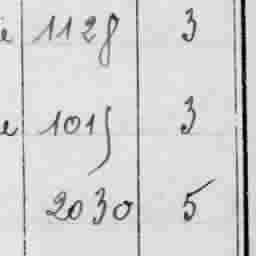 e 1128 3
e 1015 3
2030 5